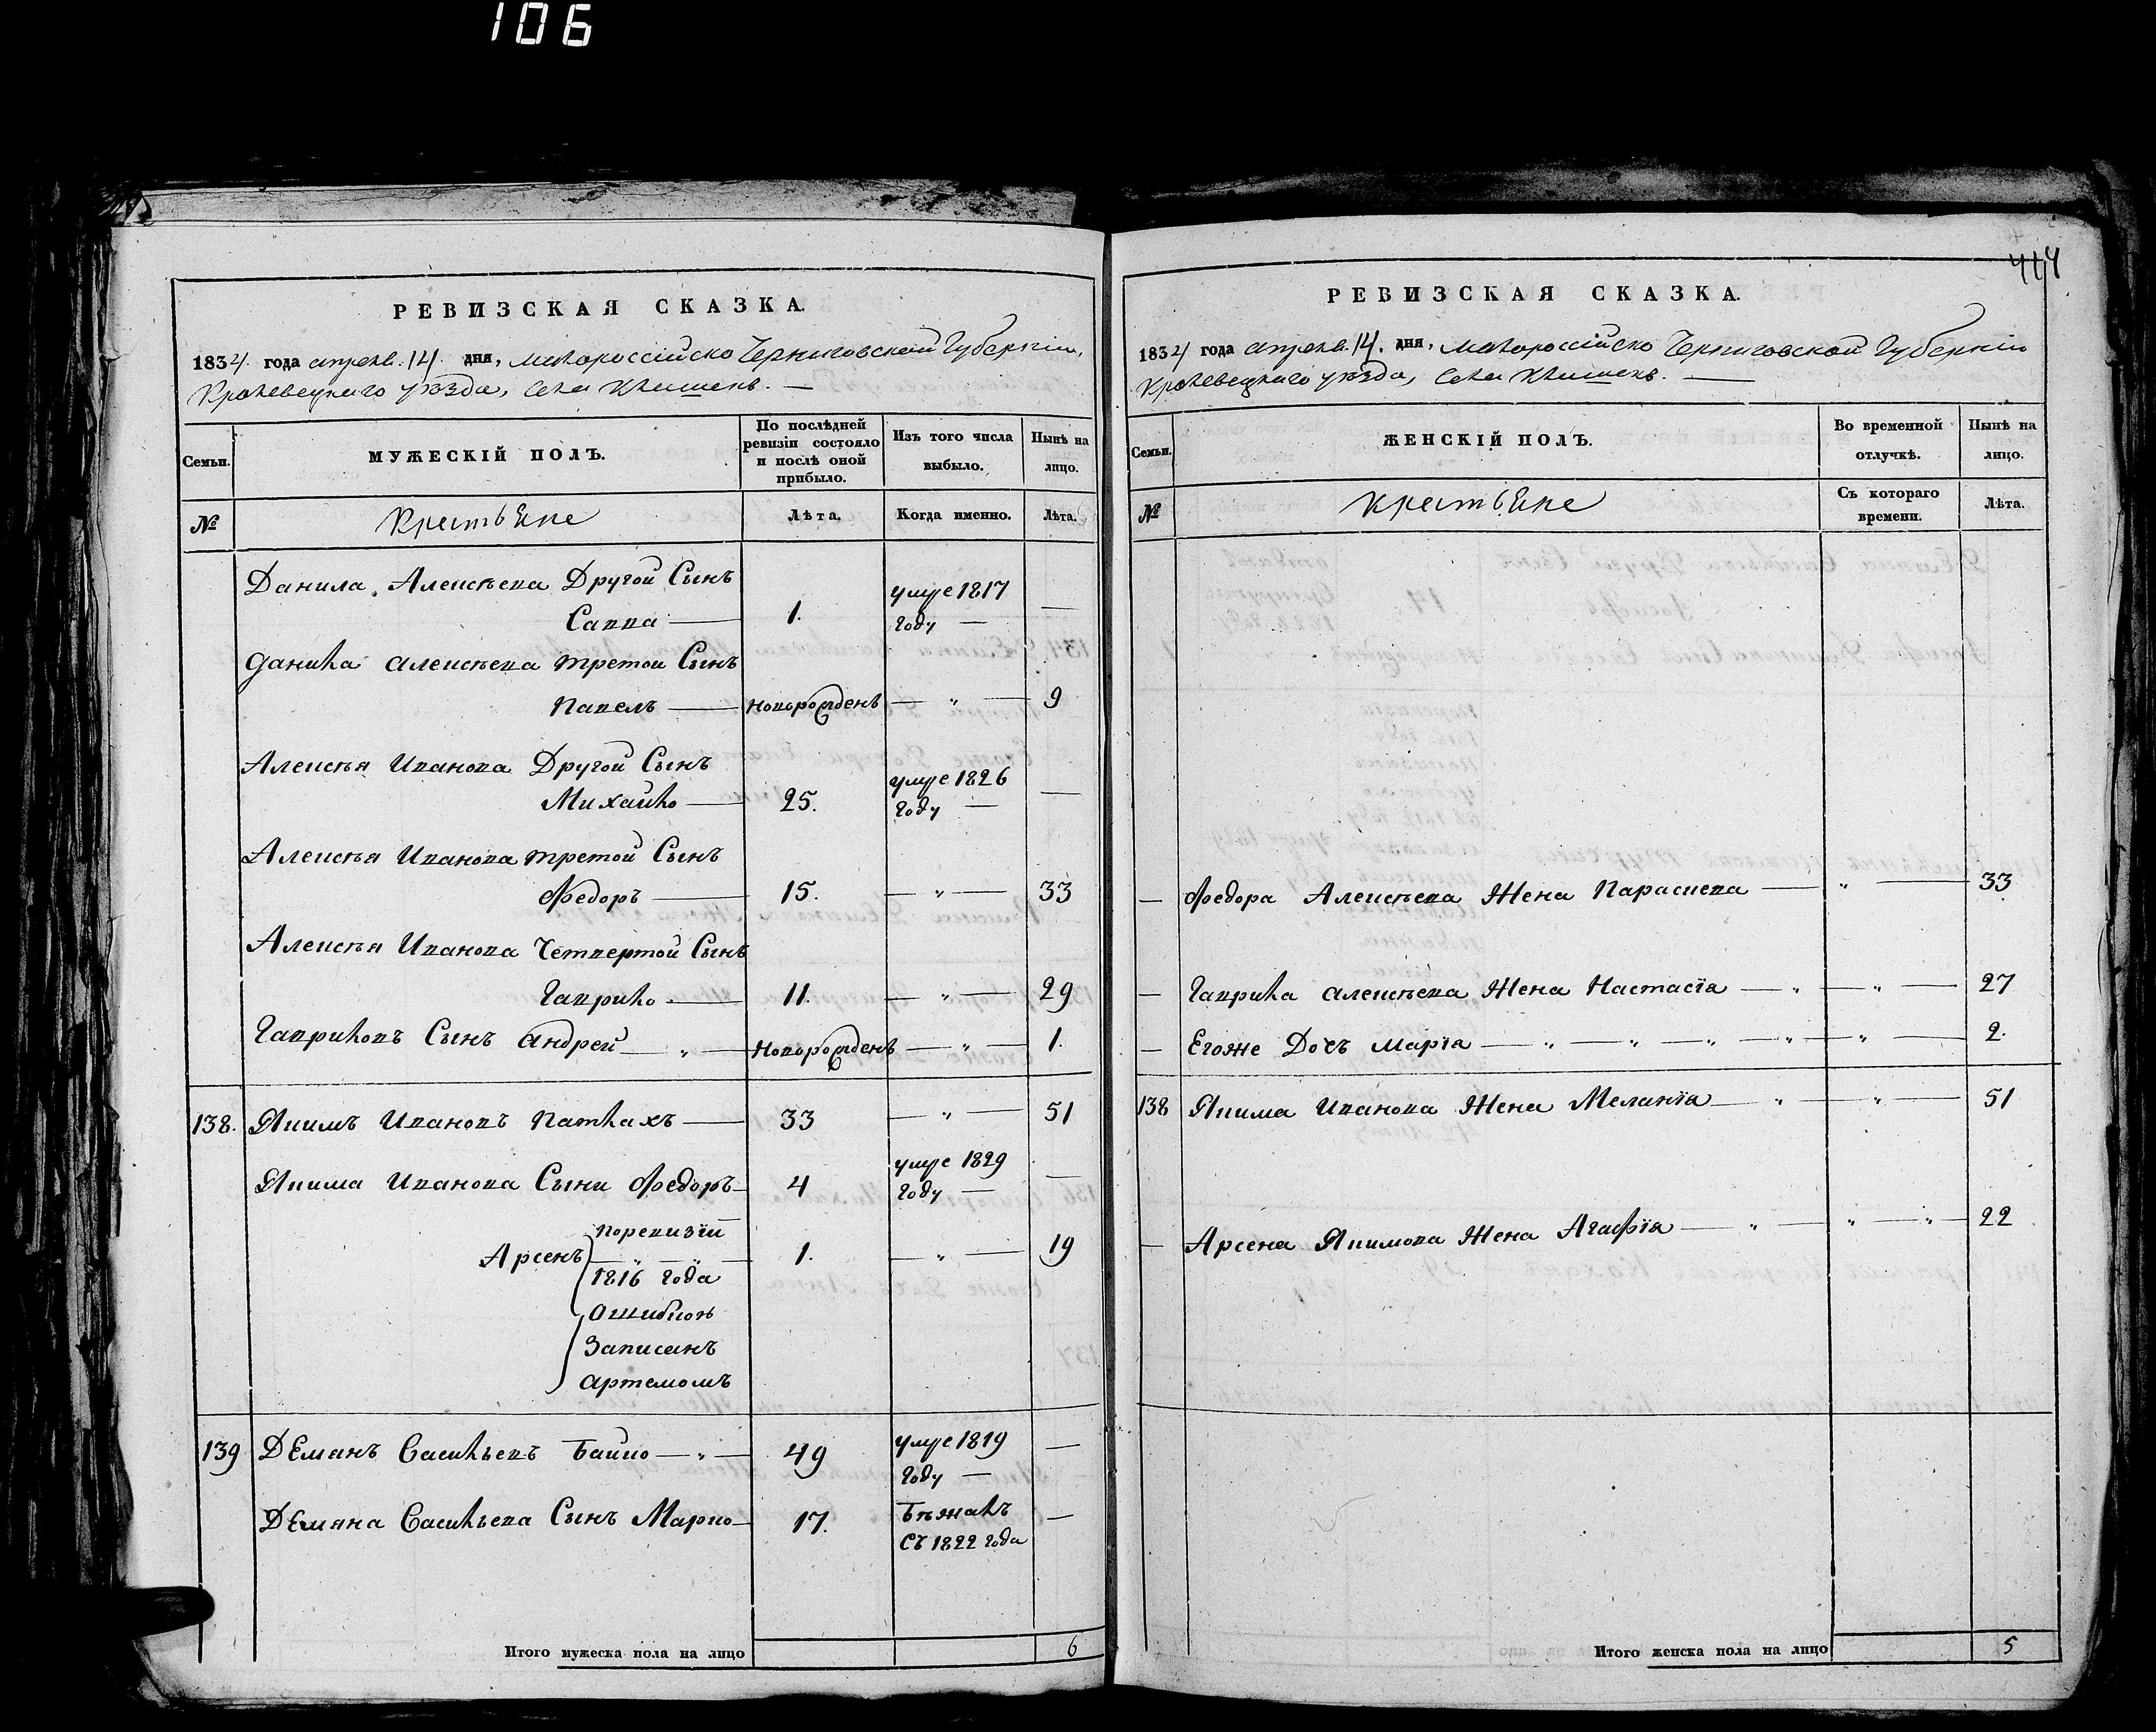 106
РЕВИЗСКАЯ СКАЗКА.
1834. года апреля. 14. дня, малороссійско Черниговской Губерніи,
Кролевецкаго уѣзда, села Клишекъ. —
Семьи.
МУЖЕСКІЙ ПОЛЪ.
По послѣдней ревизіи состояло и послѣ оной прибыло.
Изъ того числа выбыло.
Нынѣ на лицо.
№
Крестьяне
Лѣта.
Когда именно.
Лѣта.
Данила Алексѣева Другой Сынъ
Савва — 1. умре 1817 году — —
Данила Алексѣева третой Сынъ
Павелъ — новорожденъ — „ — 9
Алексѣя Иванова Другой Сынъ
Михайло — 25. умре 1826 году — —
Алексѣя Иванова третой Сынъ
Федоръ — 15. — „ — 33
Алексѣя Иванова Четвертой Сынъ
Гаврило — 11. — „ — 29
Гавриловъ Сынъ Андрей — „ — Новорожденъ — „ — 1.
138. Якимъ Ивановъ Патлахъ — 33 — „ — 51
Якима Иванова Сыни Федоръ — 4 умре 1829 году — —
поревизіи
Арсенъ — „ — „ — 1. — „ — 19
1816 года
Ошибкою
Записанъ
артемомъ
139 Демянъ Васильевъ Байко — „ — 49 умре 1819 году — —
Демяна Васильева Сынъ Марко — 17. Бѣжалъ съ 1822 года —
Итого мужеска пола на лицо 6
444
РЕВИЗСКАЯ СКАЗКА.
1834 года апреля. 14. дня, малороссійско Черниговской Губерніи
Кролевецкаго уѣзда, села Клишекъ. —
Семьи.
ЖЕНСКІЙ ПОЛЪ.
Во временной отлучкѣ.
Нынѣ на лицо.
№
крестьяне
Съ котораго времени.
Лѣта.
— Федора Алексѣева Жена Параскева — „ — 33
— Гаврила Алексѣева Жена Настасія — „ — „ — 27
— Егоже Дочъ Марія — „ — „ — „ — „ — „ — 2.
138 Якима Иванова Жена Меланія — „ — „ — 51
— Арсена Якимова Жена Агафія — „ — „ — „ — 22
Итого женска пола на лицо 5